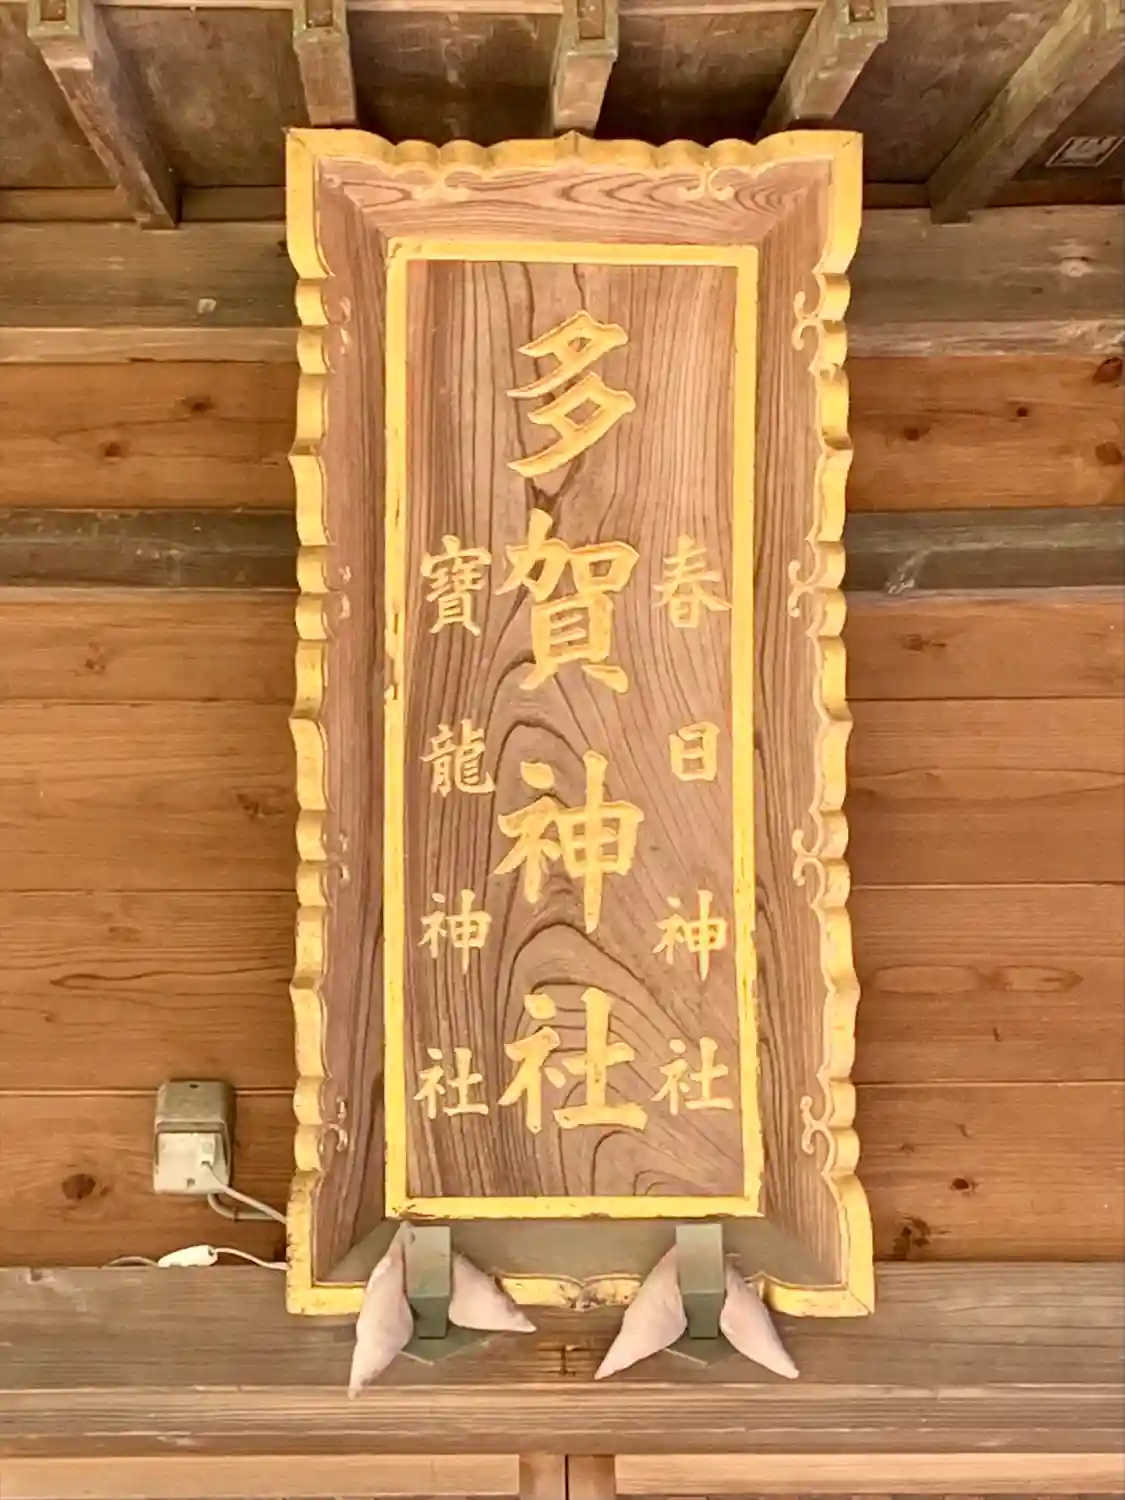 春日神社
多賀神社
寶龍神社